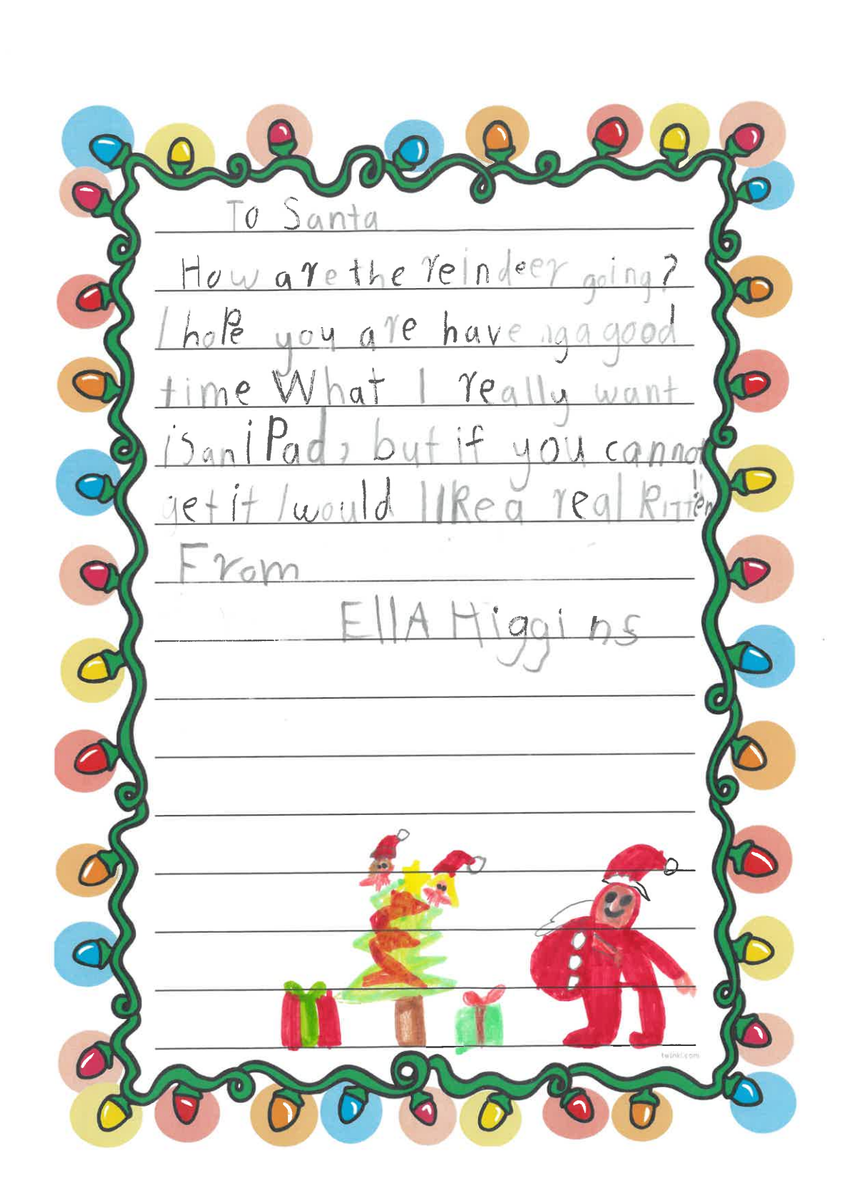 To Santa
How are the reindeer going?
I hope you are haveing a good
time What I really want
is an iPad, but if you cannot
get it I would like a real kitten
From
EllA Higgins